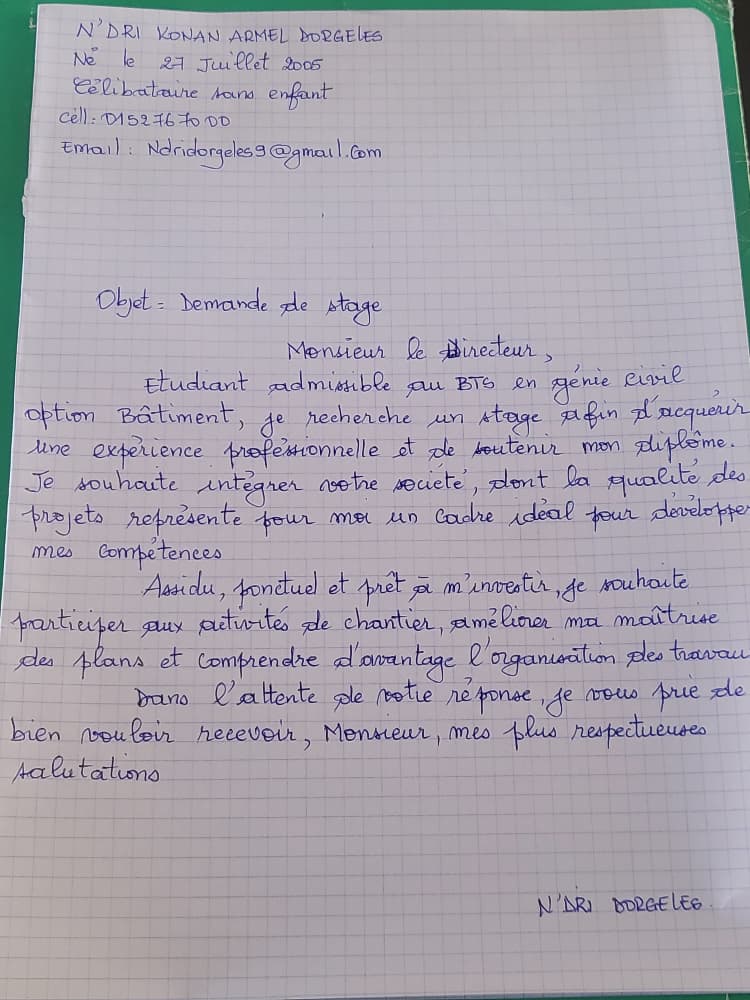 N'DRI KONAN ARMEL DORGELES
Né le 27 Juillet 2005
Célibataire sans enfant
Cell: 0152767000
Email: Ndridorgeles9@gmail.com
Objet = Demande de stage
Monsieur le Directeur,
Etudiant admissible au BTS en génie civil
option Bâtiment, je recherche un stage afin d'acquérir
une expérience proféssionnelle et de soutenir mon diplôme.
Je souhaite intégrer votre société, dont la qualité des
projets représente pour moi un cadre idéal pour développer
mes compétences
Assidu, ponctuel et prêt à m'investir, je souhaite
participer aux activités de chantier, améliorer ma maîtrise
des plans et comprendre d'avantage l'organisation des travau
Dans l'attente de votre réponse, je vous prie de
bien vouloir recevoir, Monsieur, mes plus respectueuses
salutations
N'DRI DORGELES.